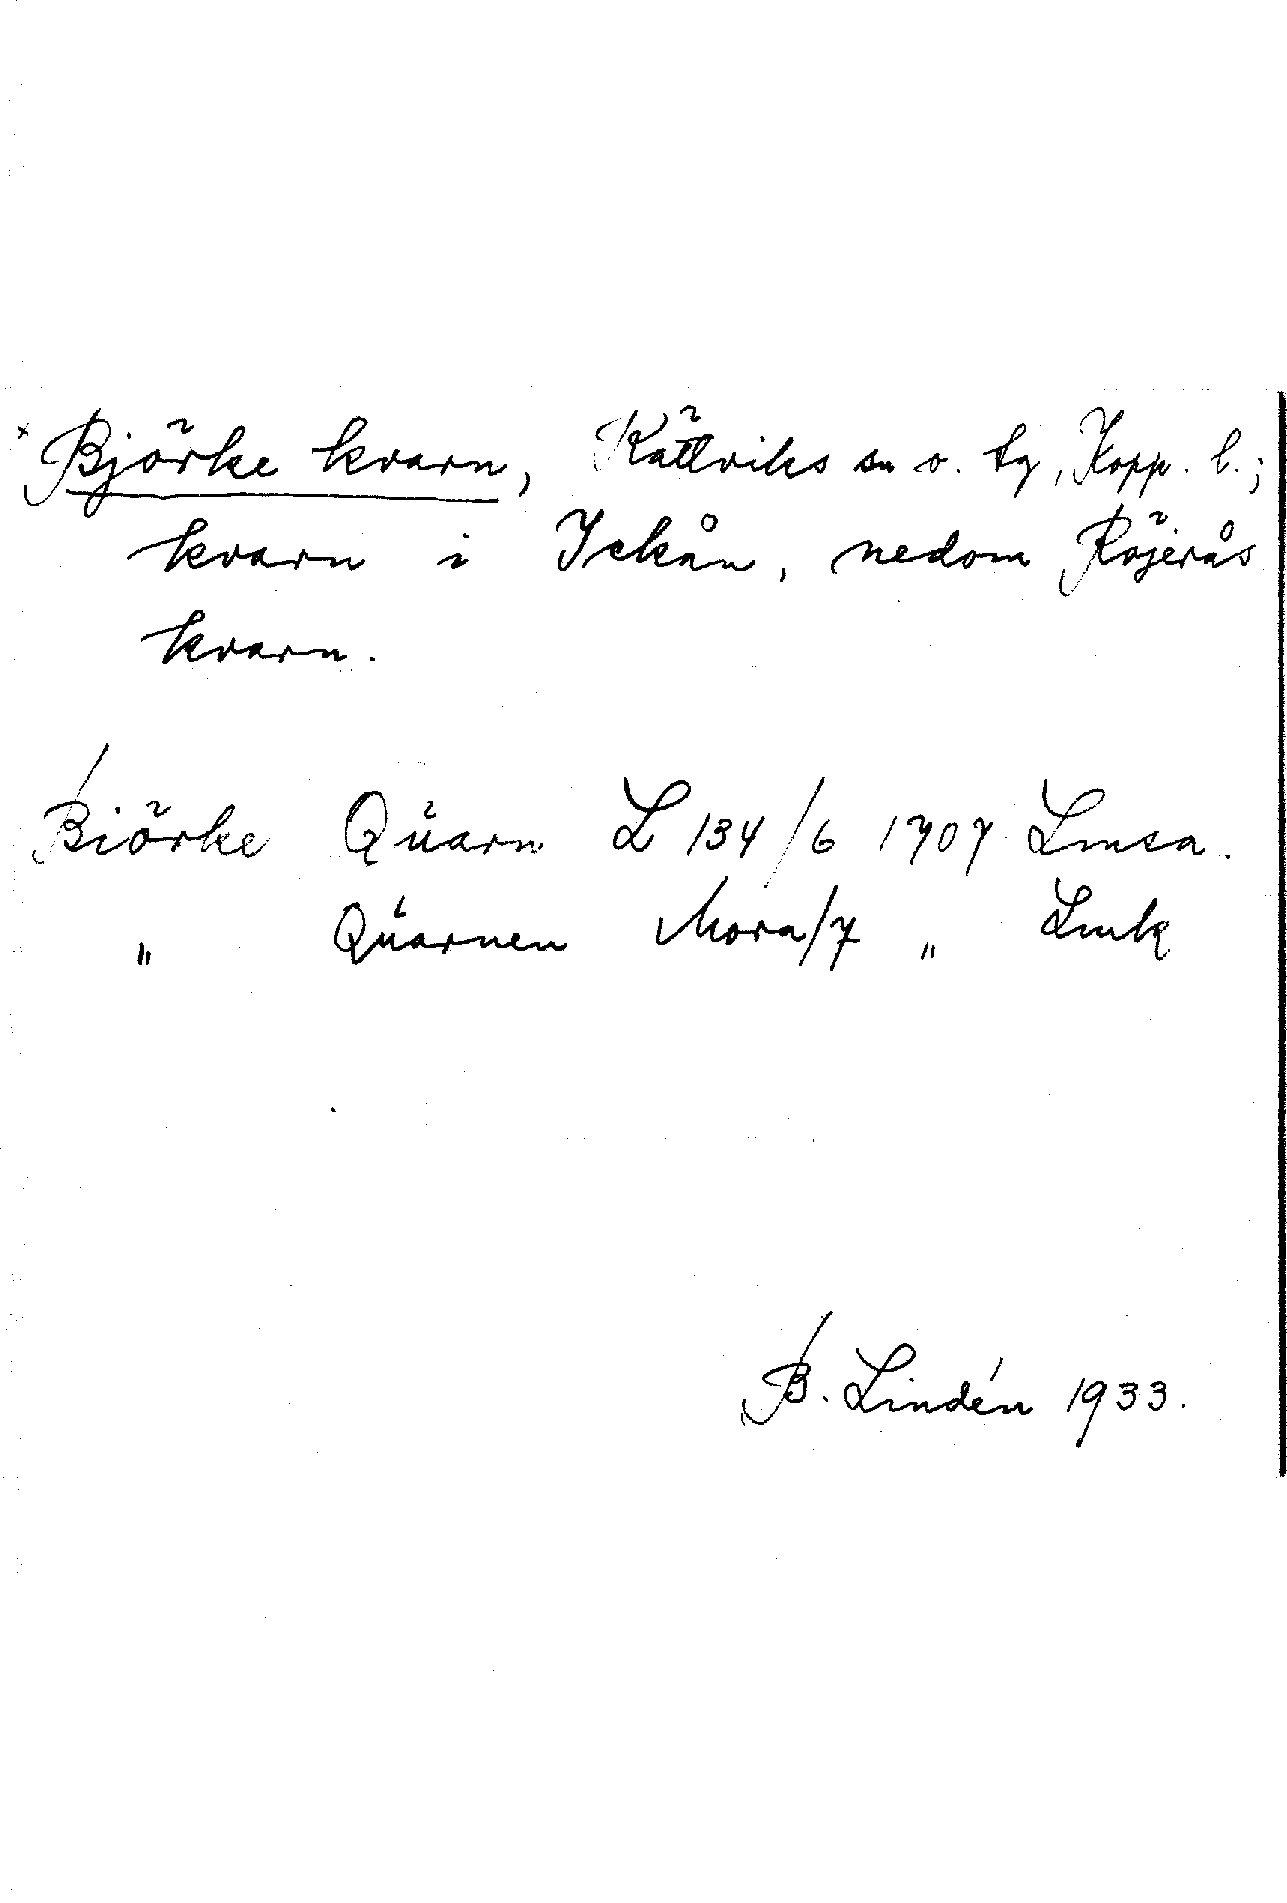 × Björke kvarn, Rättviks sn o. tg, Kopp. l.;
kvarn i Ickån, nedom Röjerås
kvarn.
Biörke Qùarn L 134/6 1707 Lmsa.
" Qùarnen Mora/7 " Lmk
B. Lindén 1933.